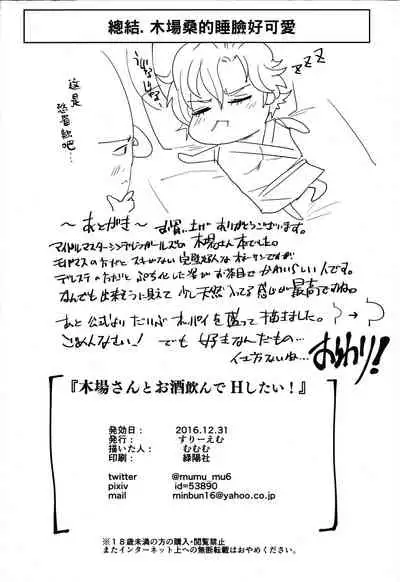 總結. 木場桑的睡臉好可愛
zzz
这是
恐怖
～あとがき～ お買い上げありがとうございます。
アイドルマスターシンデレラガールズの木場さん本でした。
デレステの方だと
かわいらしい人です。
なんでも出来そうに見えて 少し天然入ってる感じが最高ですね。
あと公式よりだいぶオッパイを盛って描きました。
ごめんなさい！ でも 好きなんだもの…
仕方ないね…
おわり！
『木場さんとお酒飲んでHしたい！』
発効日： 2016.12.31
発行： すりーえむ
描いた人： むむむ
印刷： 緑陽社
twitter @mumu_mu6
pixiv id=53890
mail minbun16@yahoo.co.jp
※１８歳未満の方の購入・閲覧禁止
またインターネット上への無断転載はおやめください。